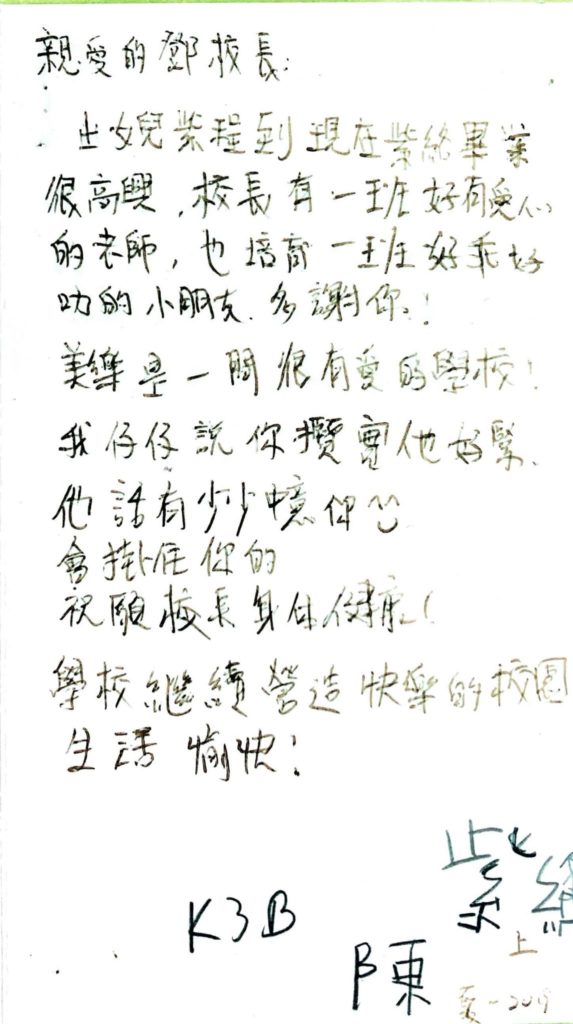 親愛的鄧校長:
女兒紫程到現在紫絡畢業
很高興,校長有一班好有愛心
的老師,也培育一班好乖好
叻的小朋友.多謝你.!
美樂是一間很有愛的學校!
我仔仔說你攬實他好緊.
他話有少少中意你
會掛住你的
祝願校長身体健康!
學校繼續營造快樂的校園
生活愉快!
K3B
陳紫
上
2019